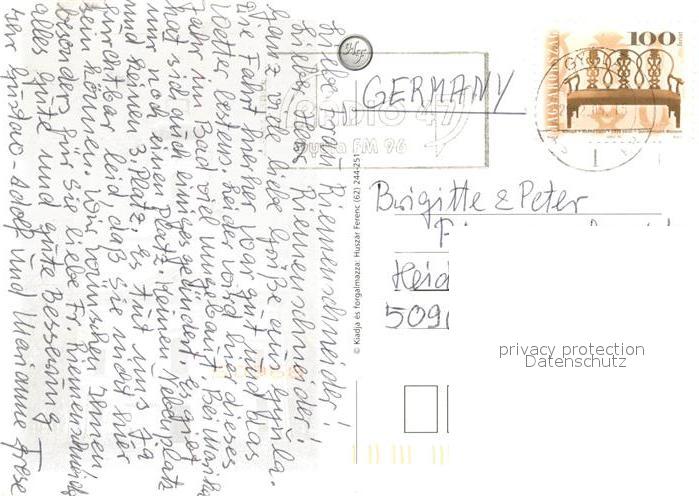 Liebe Frau Riemenschneider!
Lieber Herr Riemenschneider!
Ganz viele liebe Grüße aus Gyula.
Die Fahrt hierher war gut und das
Wetter bestens. Leider wird hier dieses
Jahr im Bad viel umgebaut. Bei Marika
hat sich auch einiges geändert. Es gibt
nur noch einen Platz. Keinen Nebenplatz
und keinen 3. Platz. Es tut uns ja
furchtbar leid daß Sie nicht hier
sein können. Wir wünschen Ihnen
besonders für Sie liebe Fr. Riemenschneider
alles gute und gute Besserung
Ihr Gustav-Adolf und Marianne Frese
GERMANY
Brigitte & Peter
Heid
509
© Kiadja és forgalmazza: Huszár Ferenc (62) 244-251
MAGYARORSZÁG
100
RÁDIÓ 47
Gyula FM 96
privacy protection
Datenschutz